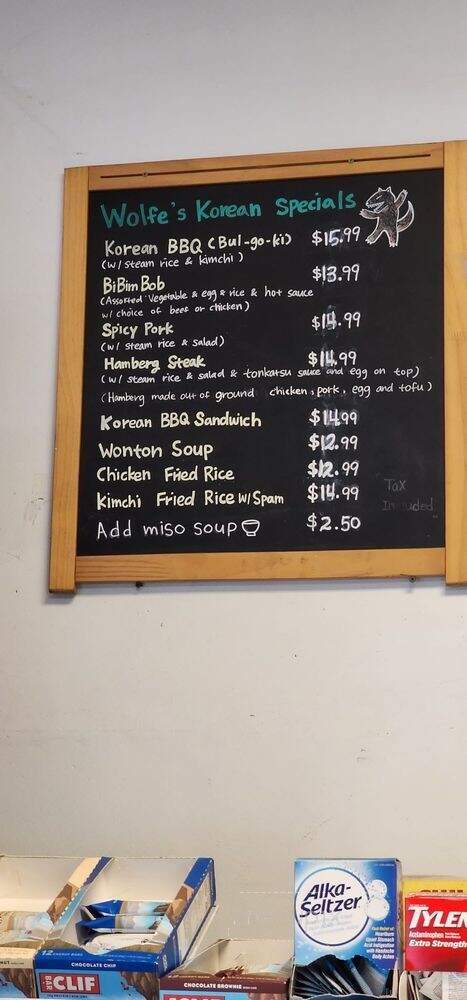 Wolfe's Korean Specials
Korean BBQ (Bul-go-ki) $15.99
(w/ steam rice & kimchi)
BiBim Bob $13.99
(Assorted Vegetable & egg & rice & hot sauce
w/ choice of beef or chicken)
Spicy Pork $14.99
(w/ steam rice & salad)
Hamberg Steak $14.99
(w/ steam rice & salad & tonkatsu sauce and egg on top)
(Hamberg made out of ground chicken, pork, egg and tofu)
Korean BBQ Sandwich $14.99
Wonton Soup $12.99
Chicken Fried Rice $12.99
Kimchi Fried Rice w/ Spam $14.99
Tax
Included
Add miso soup $2.50
Alka-
Seltzer
Fast Relief of
Heartburn
Upset Stomach
Acid Indigestion
with Headache
Body Aches
TYLEN
Acetaminophen
Extra Strength
12 ENERGY BARS
CHOCOLATE CHIP
CLIF
BAR
CHOCOLATE BROWNIE